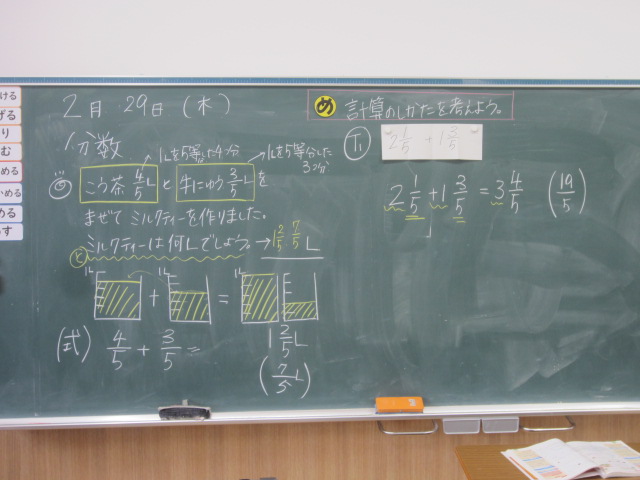 2月29日(木)
分数
1Lを5等分した4つ分
1Lを5等分した
3つ分
こう茶 4/5 L と 牛にゅう 3/5 L を
まぜて ミルクティーを作りました。
ミルクティーは何Lでしょう。→ 1 2/5 7/5 L
1L 1L 1L
+ =
(式) 4/5 + 3/5 =
1 2/5 L
(7/5 L)
め 計算のしかたを考えよう。
2 1/5 + 1 3/5
2 1/5 + 1 3/5 = 3 4/5 (19/5)
ける
げる
り
む
める
める
す